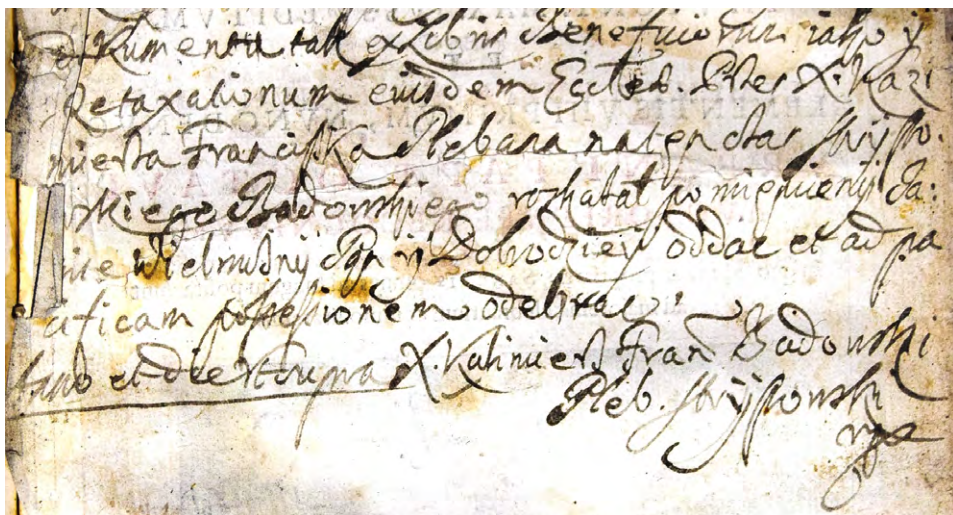 dokumentu tak ex Libris Beneficiorum iako y
Retaxationum eiusdem Eccles. Pter X. Kazi
mierza Franciszka Plebana na ten czas Stryko.
wskiego Badowskiego rozkazał po mienieniu Ja:
snie Wielmożny Pan y Dobrodziey oddac et ad pa
cificam possessionem odebrac.
Anno et die ut supra X. Kazimierz Fran Badowski
Pleb. Strykowski
mp